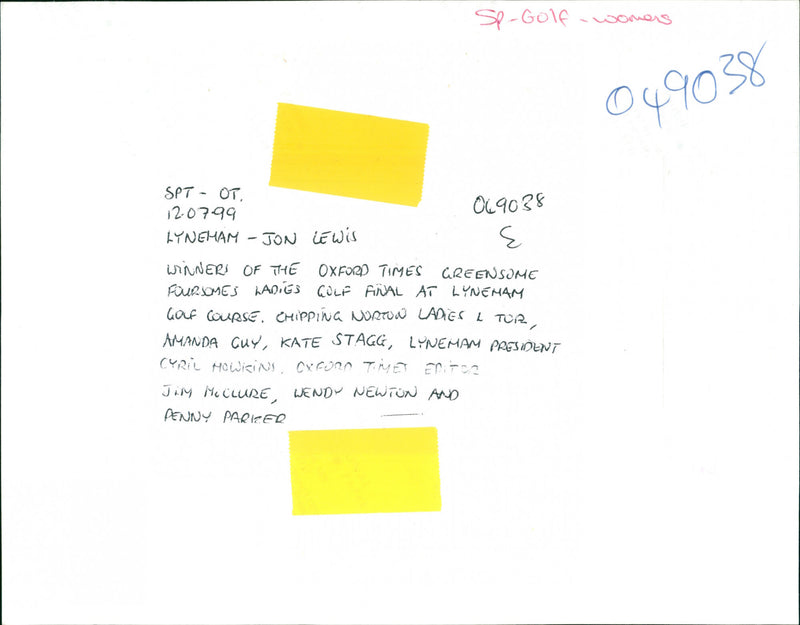 Sp-Golf-womens
049038
SPT - OT.
12.07.99
049038
LYNEHAM - JON LEWIS
WINNERS OF THE OXFORD TIMES GREENSOME
FOURSOMES LADIES GOLF FINAL AT LYNEHAM
GOLF COURSE. CHIPPING NORTON LADIES L TOR,
AMANDA GUY, KATE STAGG, LYNEHAM PRESIDENT
CYRIL HOWKINS. OXFORD TIMES EDITOR
JIM McCLURE, WENDY NEWTON AND
PENNY PARKER